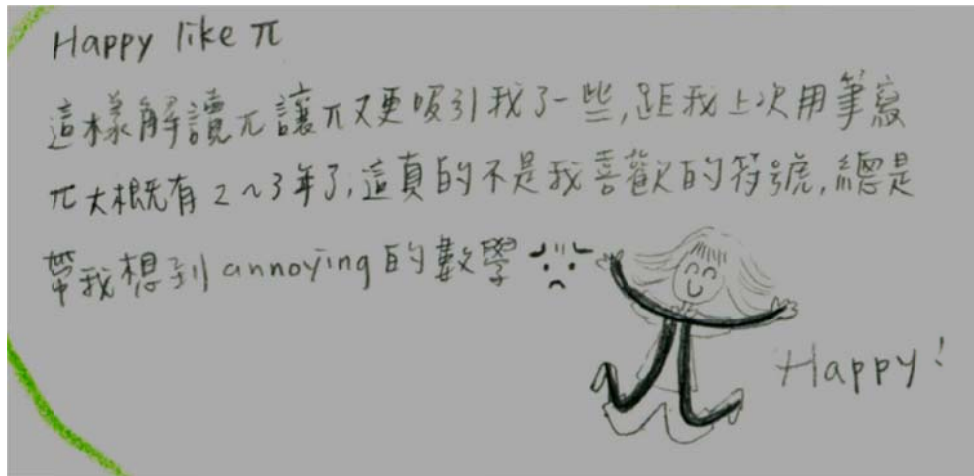 Happy like π
這樣解讀π讓π又更吸引我了一些,距我上次用筆寫
π大概有2~3年了,這真的不是我喜歡的符號,總是
帶我想到annoying的數學
Happy!